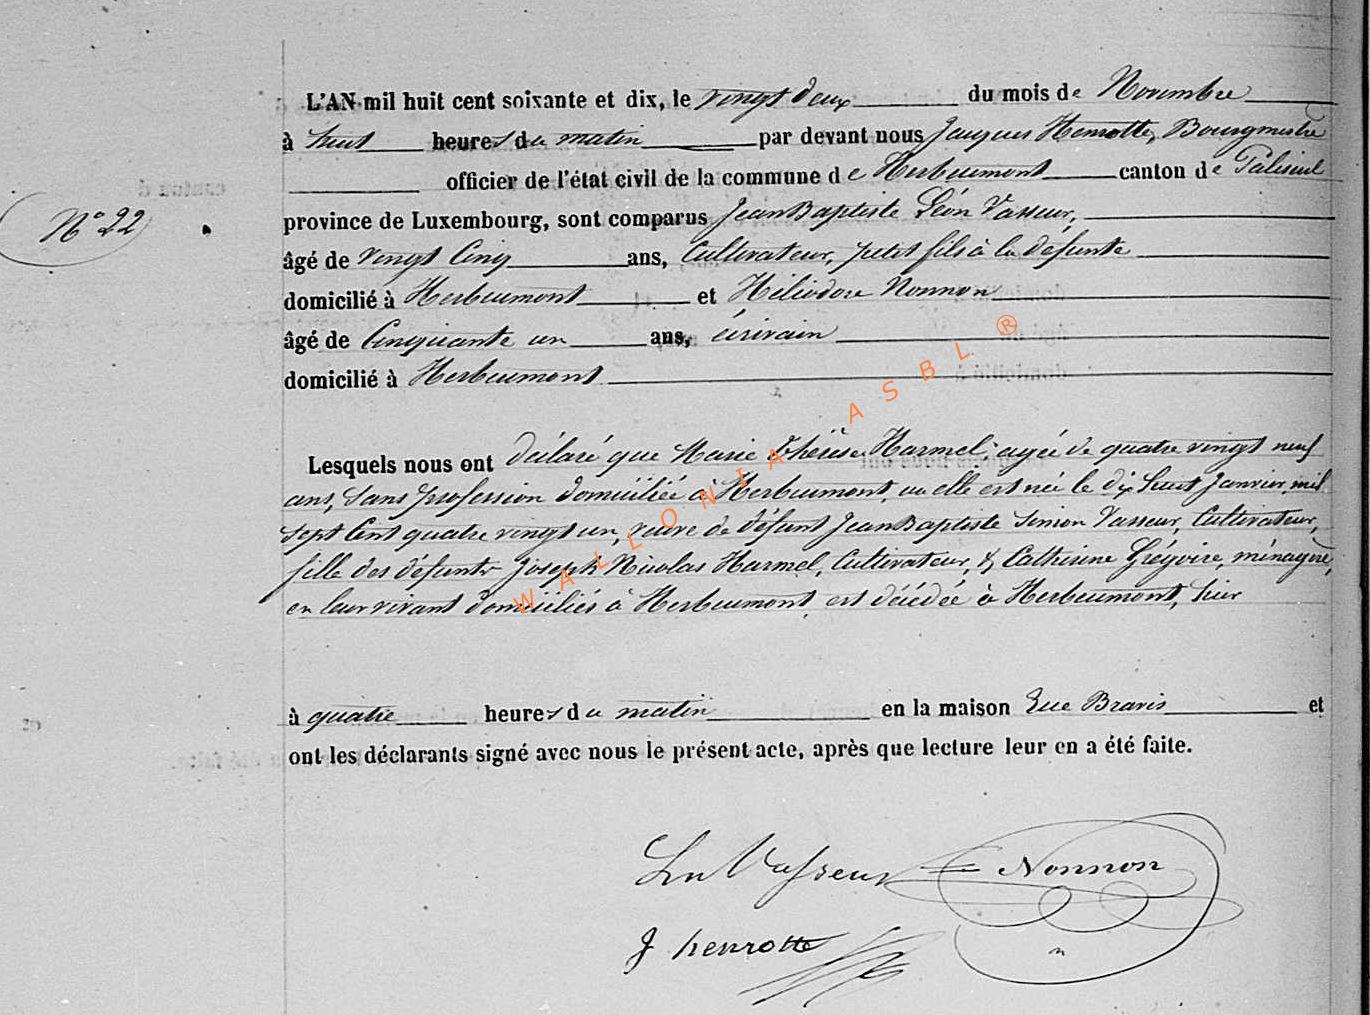 L'AN mil huit cent soixante et dix, le vingt deux du mois de Novembre
à huit heures du matin par devant nous Jacques Henrotte, Bourgmestre
officier de l'état civil de la commune de Herbeumont canton de Paliseul
N° 22
province de Luxembourg, sont comparus Jean Baptiste Léon Vasseur,
âgé de vingt Cinq ans, Cultivateur, petit fils à la défunte
domicilié à Herbeumont et Héliodore Nonnon
âgé de Cinquante un ans, écrivain
domicilié à Herbeumont
Lesquels nous ont déclaré que Marie Thérèse Harmel, agée de quatre vingt neuf
ans, Sans profession domiciliée à Herbeumont, ou elle est née le dix huit Janvier mil
sept Cent quatre vingt un, veuve de défunt Jean Baptiste Simon Vasseur, Cultivateur,
fille des défunts Joseph Nicolas Harmel, Cultivateur, & Catherine Grégoire, ménagère,
en leur vivant domiciliés à Herbeumont, est décédée à Herbeumont, hier
à quatre heures du matin en la maison Rue Bravis et
ont les déclarants signé avec nous le présent acte, après que lecture leur en a été faite.
Ln Vasseur Nonnon
J henrotte
WALLONIA ASBL ®